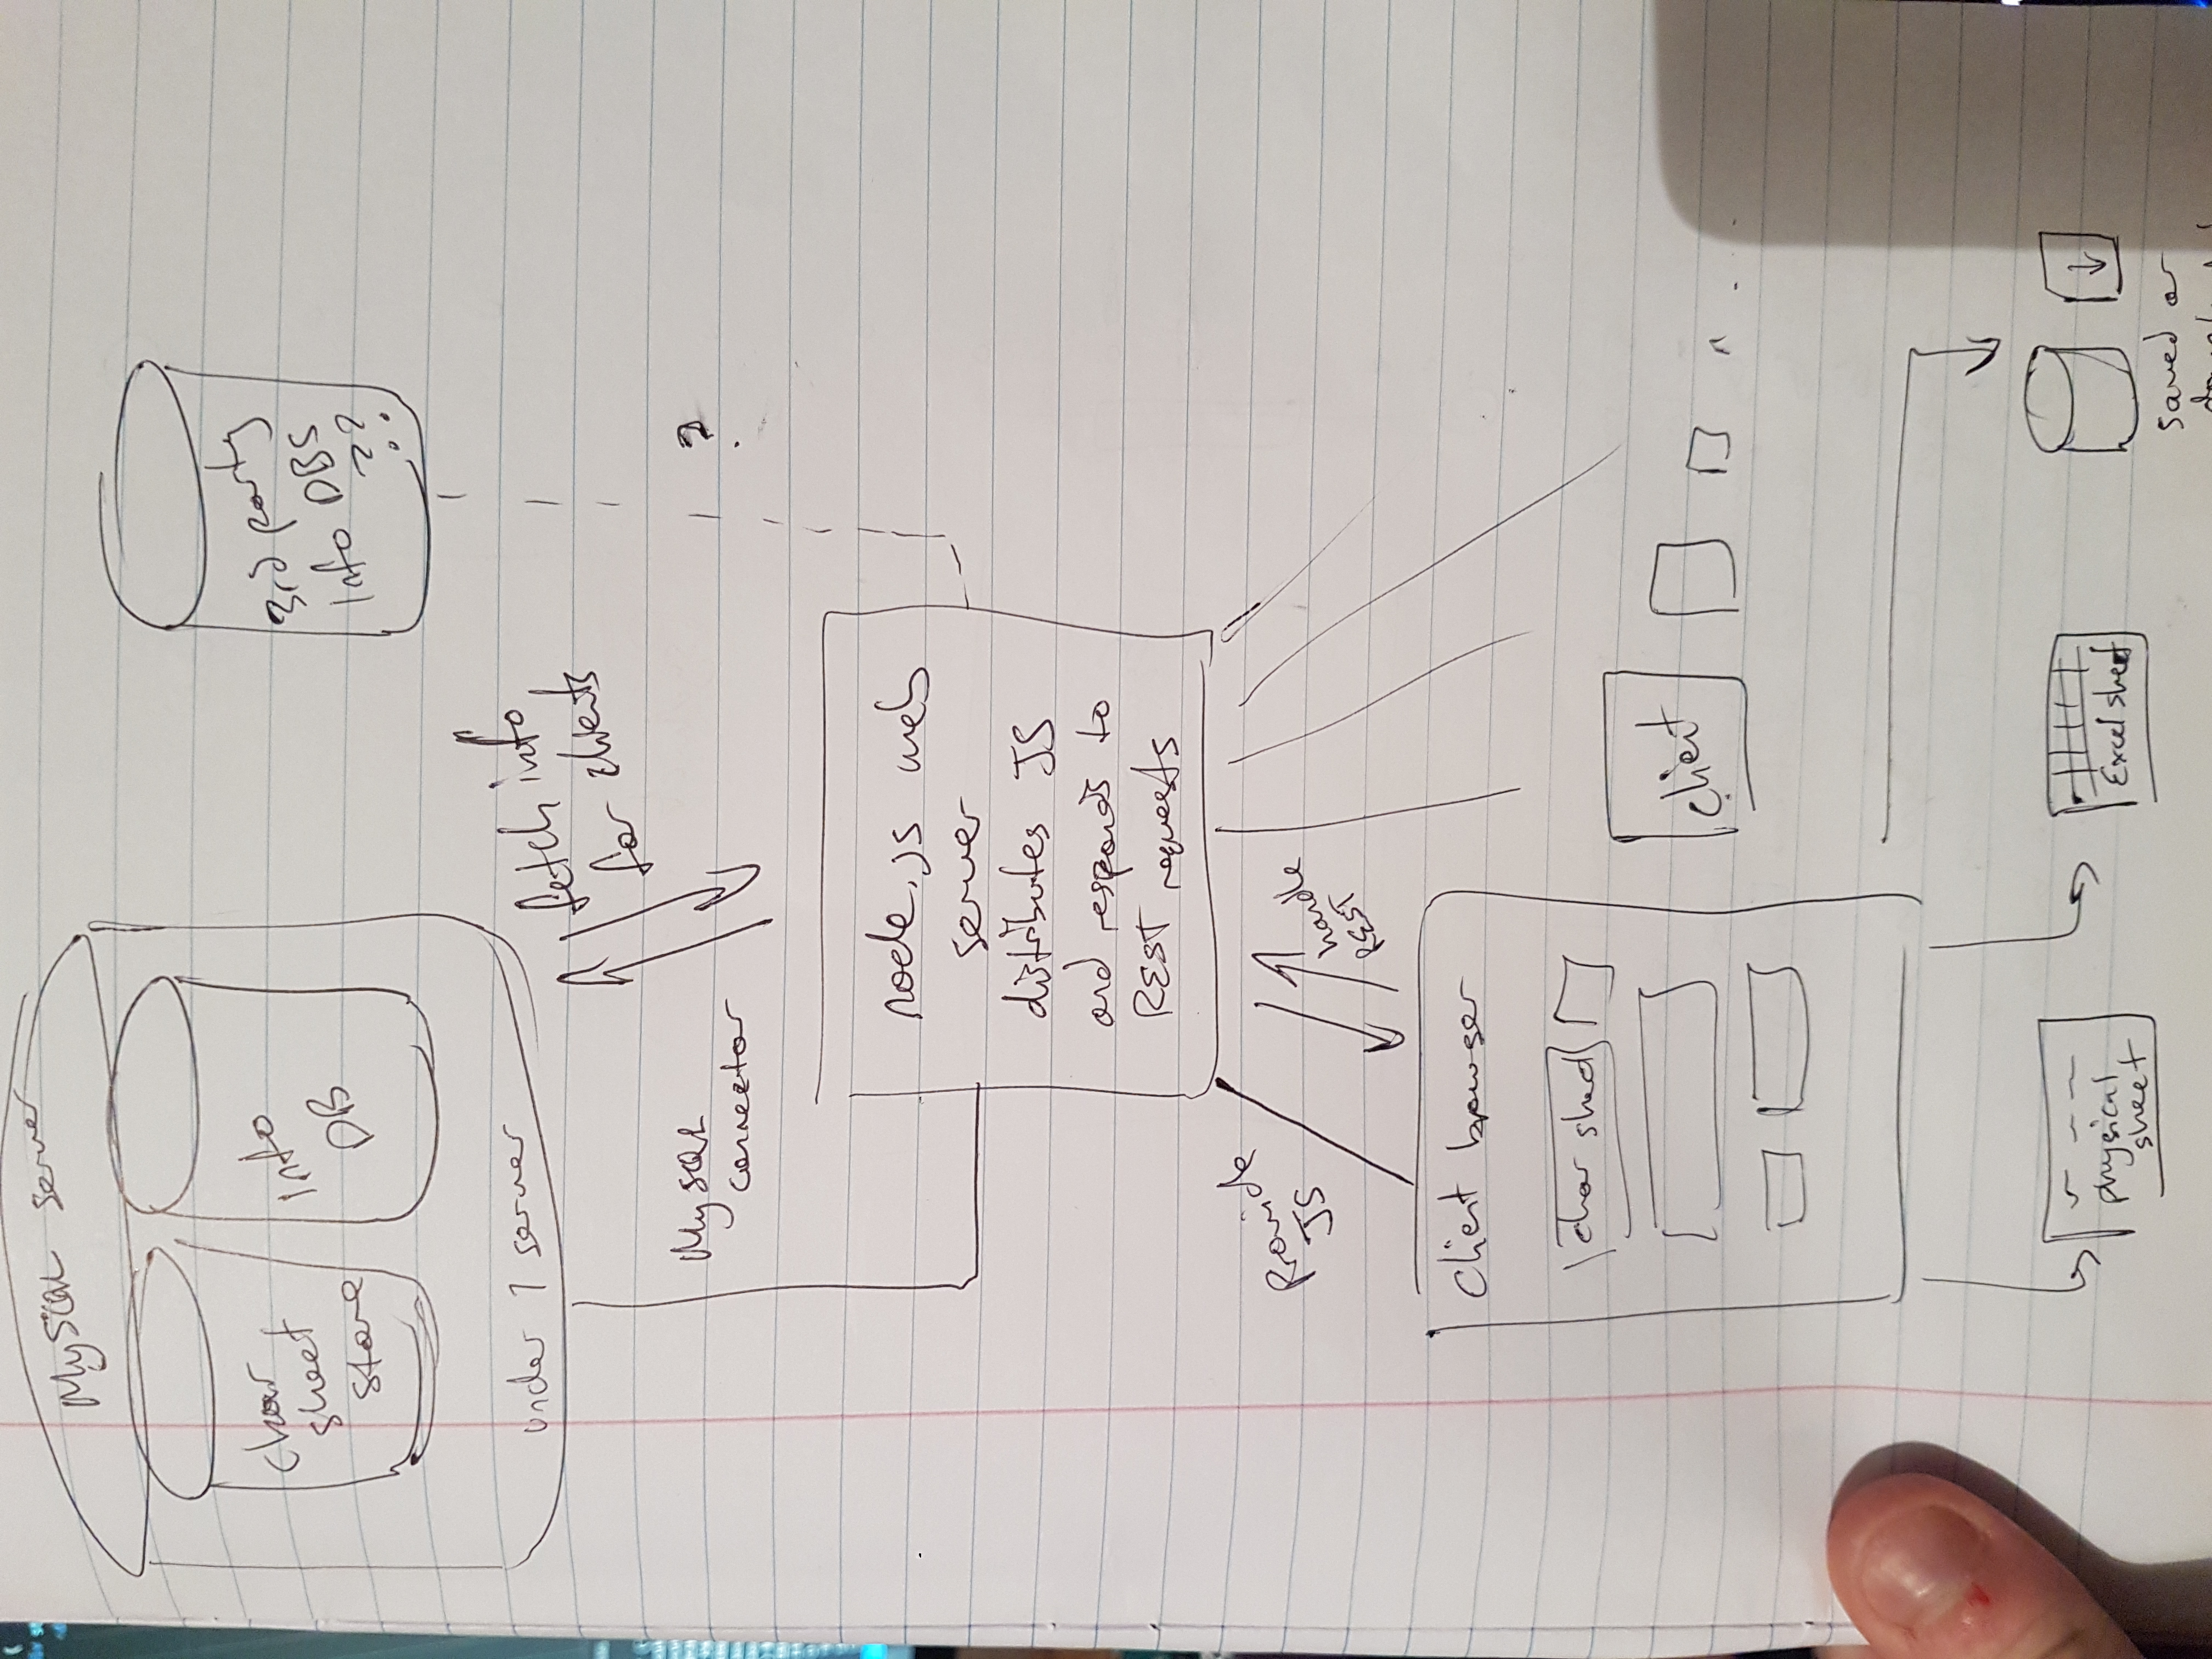 MySQL server
char
sheet
store
Info
DB
3rd party
Info DBS
??
under 1 server
fetch info
for clients
MySQL
connector
?
node.js web
server
distributes JS
and responds to
REST requests
Provide
JS
handle
REST
Client browser
char sheet
client
physical
sheet
Excel sheet
saved or